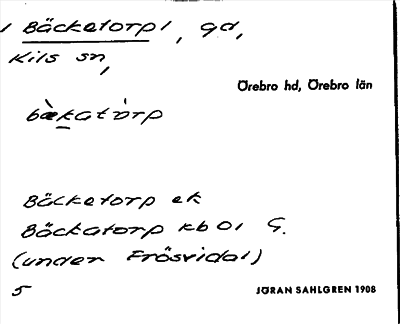 1 Bäcketorp1, gd,
Kils sn,
Örebro hd, Örebro län
bæ̀katɔ̀rp
Bäcketorp ek
Bäckatorp kb 01 G.
(under Frösvidal)
5
JÖRAN SAHLGREN 1908